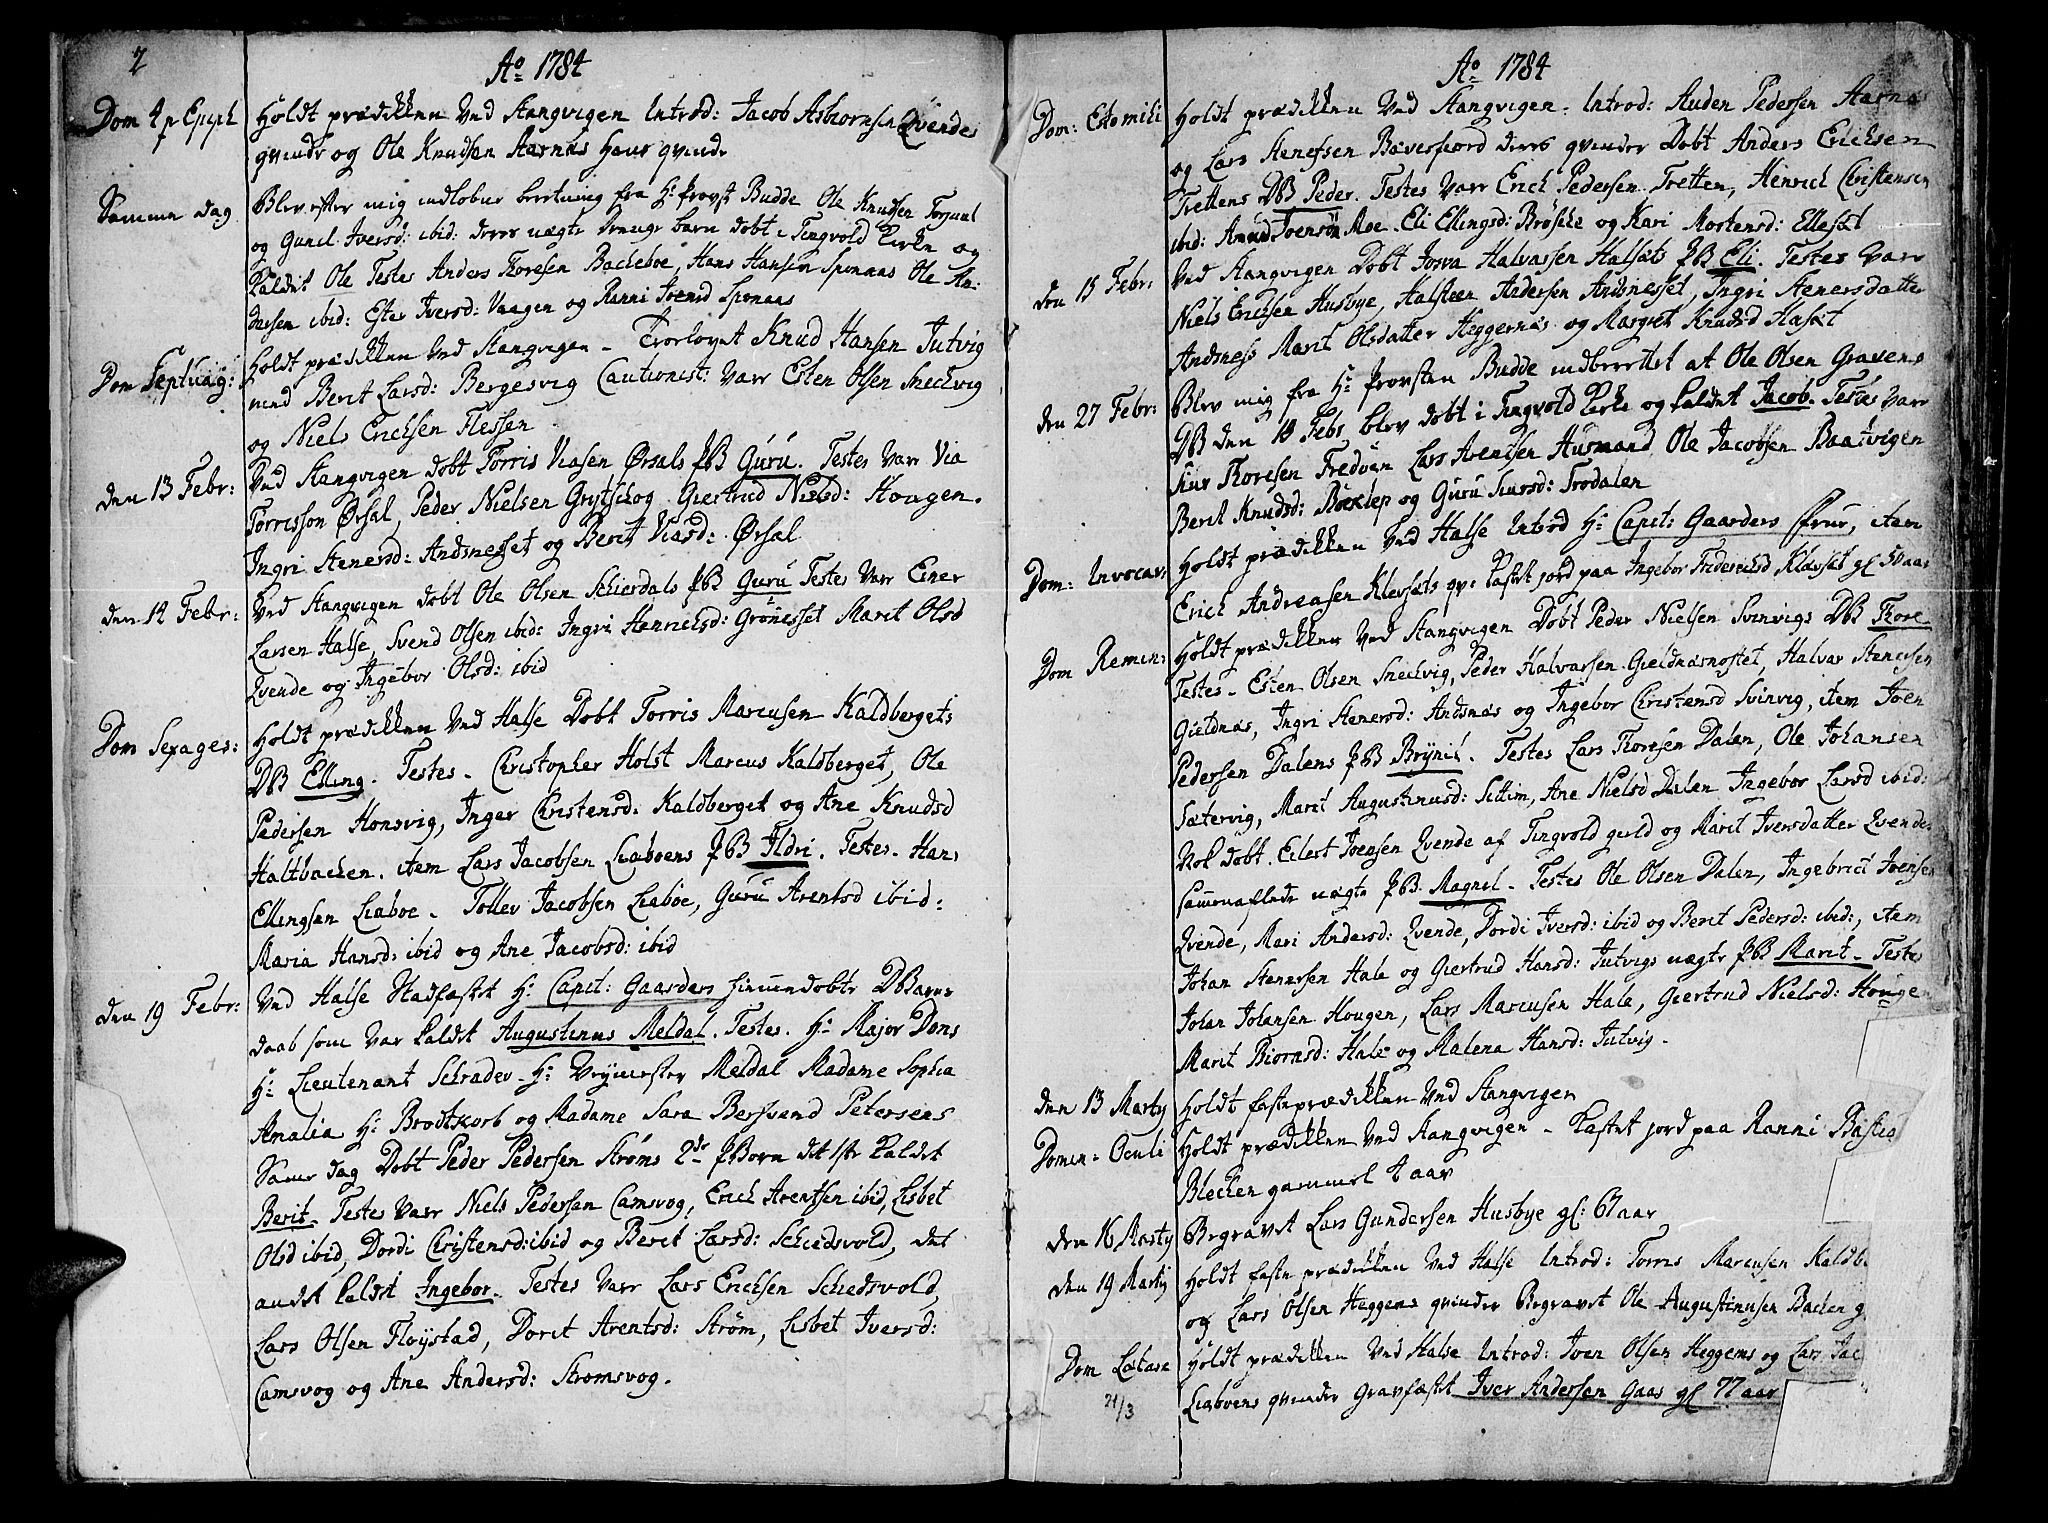 2
Ao 1784
Dom 4 p Epiph
Holdt prædikken Ved Stangvigen Introd: Jacob Asbiornsen Qvendes
qvinde og Ole Knudsen Aarnæs Hans qvinde
Samme dag
Blev efter mig indlobne beretning fra Hr Provst Budde Ole Knudsen Torjual
og Gunil Iversd: ibid: deres uægte Drenge barn dobt i Tingvold kirke og
kaldet Ole Testes Anders Thoresen Backeboe, Hans Hansen Sponaas Ole An:
dersen ibid: Ester Iversd: Vaagen og Ranni Joensd Sponaas
Dom Septuag:
Holdt prædikken Ved Stangvigen - Trorlovet Knud Hansen Jutvig
med Berit Larsd: Bergesvig Cautionist: Varr Esten Olsen Snedvig
og Niels Erichsen Flessen
den 13 Febr:
Ved Stangvigen dobt Torris Viasen Ørsals PB Guru. Testes Varr Via
Torrisson Ørsal, Peder Nielsen Grytschog Giertrud Nielsd: Hougen.
Ingri Stenersd: Andsnesset og Berit Viasd: Ørsal
den 14 Febr:
Ved Stangvigen dobt Ole Olsen Schierdals PB Guru Testes Varr Einer
Larsen Halse, Svend Olsen ibid: Ingri Henrichsd: Grönesset Marit Olsd
Qvende og Ingebor Olsd: ibid
Dom Sexages:
Holdt prædikken Ved Halse Dobt Torris Marcusen Kaldbergets
DB Elling. Testes - Christopher Holst Marcus Kaldberget, Ole
Pedersen Honsvig, Inger Christensd: Kaldberget og Ane Knudsd
Haltbacken. item Lars Jacobsen Liaboens PB Ildri. Testes. Hans
Ellingsen Liaboe - Tollev Jacobsen Liaboe, Guru Arentsd ibid:
Maria Hansd: ibid og Ane Jacobsd: ibid
den 19 Febr:
Ved Halse Stadfæstet Hr Capit: Gaarders hiemmedobte DBarns
daab som var kaldet Augustinus Meldal. Testes. Hr Major Dons
Hr Lieutenant Schrader - Hr Veymester Meldal Madame Sophia
Amalia Hr Brodtkorb og Madame Sara Bersvend Petersens
Same dag Dobt Peder Pedersen Ströms 2de PBorn det 1ste kaldet
Berit. Testes Varr Niels Pedersen Camsvog, Erich Arentsen ibid, Lisbet
Olsd ibid, Dordi Christensd: ibid og Berit Larsd: Schiedsvold, det
andet kaldet Ingebor. Testes Varr Lars Erichsen Schedsvold,
Lars Olsen Floystad, Dorit Arentsd: Ström, Lisbet Iversd:
Camsvog og Ane Andersd: Stromsvog.
Ao 1784
Dom: Estomihi
Holdt prædikken Ved Stangvigen. Introd: Auden Pedersen Aarnæs
og Lars Stenersen Bæverfiord deres qvinder Dobt Anders Erichsen
Trettens DB Peder. Testes Varr Erich Pedersen Tretten, Henrich Christensen
ibid: Amund Joensön Moe. Eli Ellingsd: Bröske og Kari Mortensd: Ellesæt
den 15 Febr:
Ved Stangvigen Dobt Josva Halvarsen Halsæts PB Eli. Testes Varr
Niels Erichsen Husbye, Halsteen Andersen Andsnesset, Ingri Stenersdatter
Andsness Marit Olsdatter Heggernæs og Margret Knudsd Hasæt
den 27 Febr:
Blev mig fra Hr Provsten Budde indberettet at Ole Olsen Gravens
DB den 18 Febr blev dobt i Tingvold kirke og kaldet Jacob. Testes Varr
Siur Thoresen Tredven Lars Arentsen Husmand Ole Jacobsen Baatvigen
Berit Knudsd: Böeklep og Guru Siursd: Trodalen
Dom: Invocav:
Holdt prædikken Ved Halse Introd Hr Capit: Gaarders Frue, item
Erich Andreasen Klevsets qv: kastet jord paa Ingebor Friderichsd Klevset gl 50 aar
Dom Remin:
Holdt prædikken Ved Stangvigen Dobt Peder Nielsen Svinvigs DB Thore
Testes - Esten Olsen Snedvig, Peder Halvarsen Gieldnæsnostet, Halvar Stenersen
Gieldnæs, Ingri Stenersd: Andsnæs og Ingebor Christensd Svinvig, item Joen
Pedersen Dalens PB Brynil. Testes Lars Thoresen Dalen, Ole Johansen
Sætervig, Marit Augustinusd: Settim, Ane Nielsd Dalen Ingebor Larsd ibid:
Nok dobt. Eilert Joensen Qvende af Tingvold gield og Marit Iversdatter Qvende
sammenaflede uægte PB. Magnil - Testes Ole Olsen Dalen, Ingebrict Joensen
Qvende, Mari Andersd: Qvende, Dordi Iversd: ibid og Berit Pedersd: ibid:, item
Johan Stenersen Hale og Giertrud Hansd: Jutvigs uægte PB Marit - Testes
Johan Johansen Hougen, Lars Marcusen Hale, Giertrud Nielsd: Hougen
Marit Biornsd: Hale og Malena Hansd: Jutvig.
den 13 Marty
Holdt fasteprædikken Ved Stangvigen
Domin: Oculi
Holdt prædikken Ved Stangvigen - kastet jord paa Ranni
Blecken gammel 4 aar
den 16 Marty
Begravet Lars Gundersen Husbye gl: 67 aar
den 19 Marty
Holdt faste prædikken Ved Halse Introd: Torris Marcusen Kaldb
og Lars Olsen Heggems qvinder Begravet Ole Augustinusen Backen g
Dom Lætare
21/3
Holdt prædikken Ved Halse Introd: Iver Olsen Heggems og Lars Jac
Liaboens qvinder Gravfæstet Iver Andersen Gaas gl 77 aar